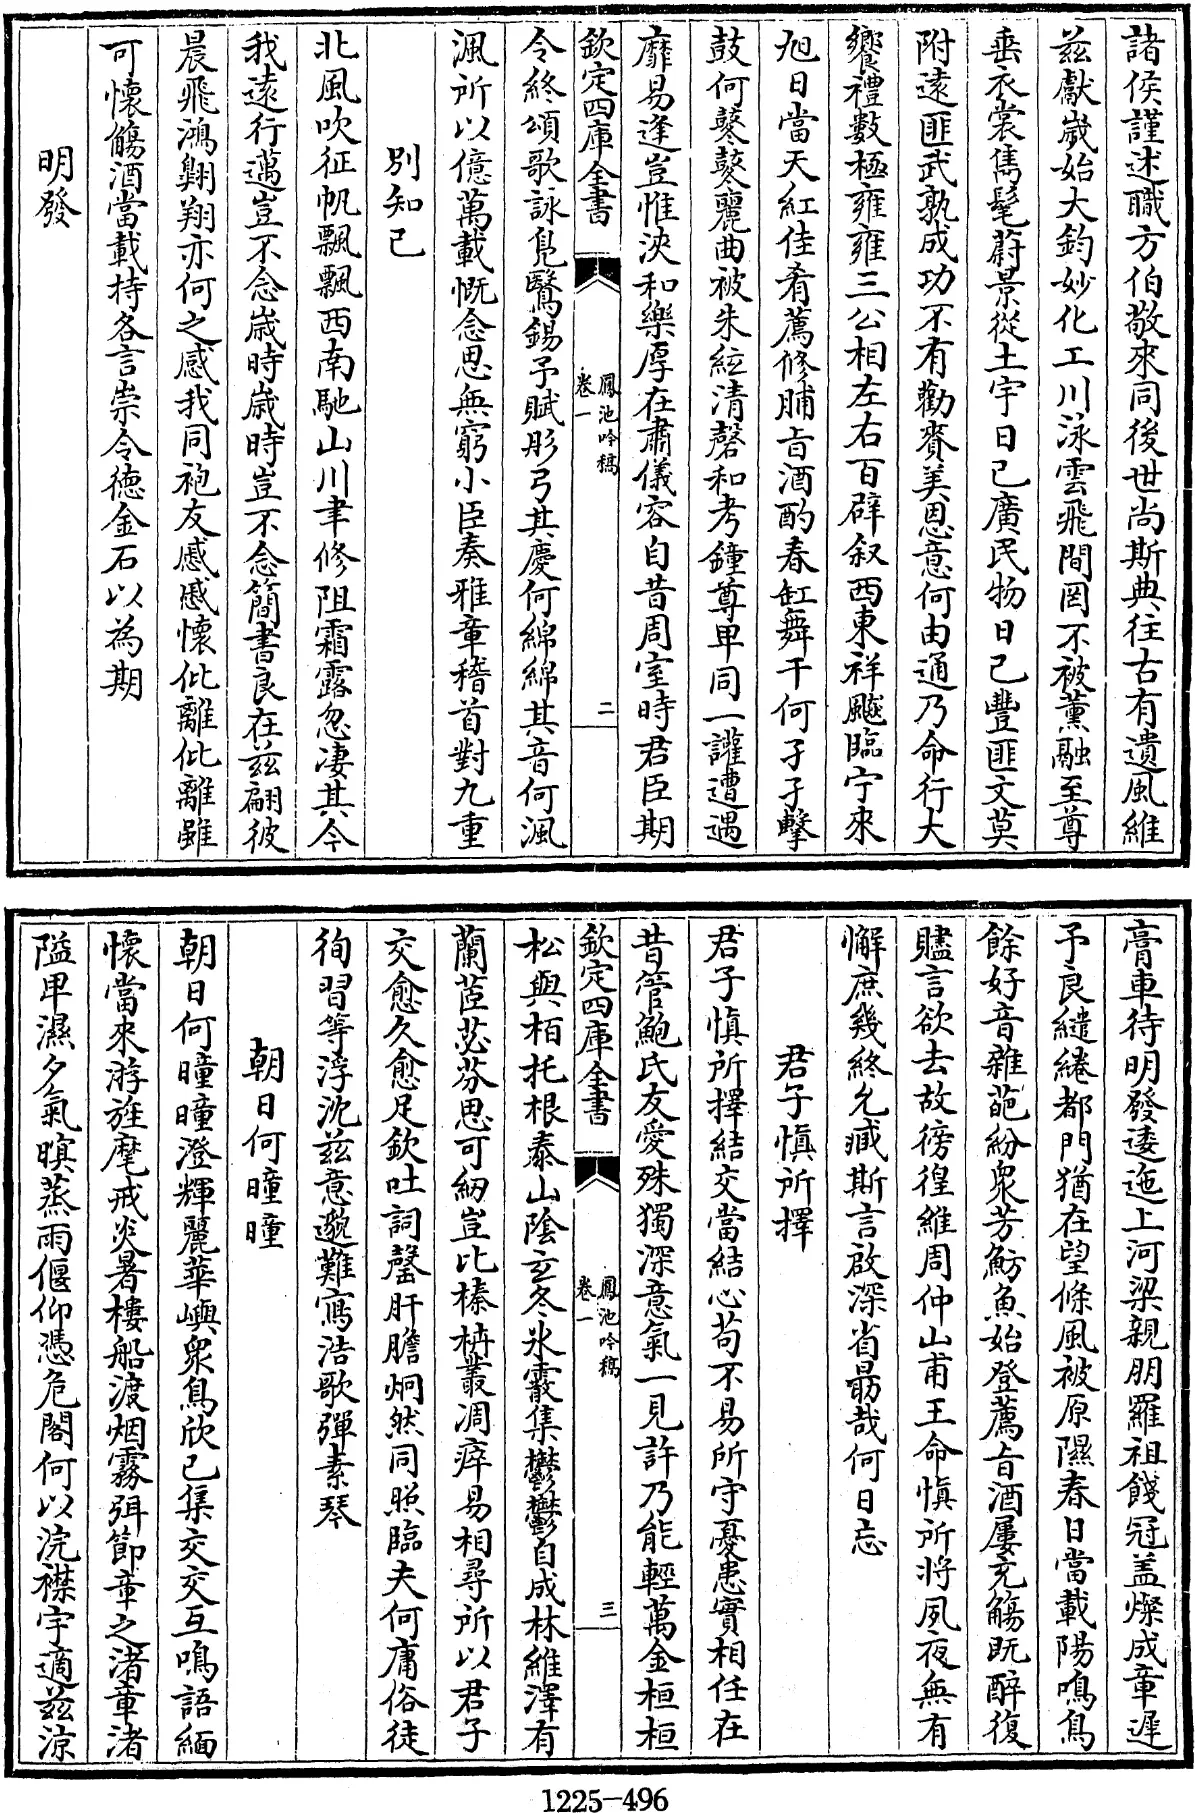 諸侯謹述職方伯敬來同後世尚斯典往古有遺風維
兹獻嵗始大鈞妙化工川泳雲飛間罔不被薰融至尊
垂衣裳雋髦蔚景從土宇日已廣民物日已豐匪文莫
附遠匪武孰成功不有勸賚美恩意何由通乃命行大
饗禮數極雍雍三公相左右百辟叙西東祥飇臨宁來
旭日當天紅佳肴薦修脯旨酒酌春缸舞干何孑孑擊
鼓何鼕鼕麗曲被朱絃清磬和考鐘尊卑同一讙遭遇
靡易逢豈惟浹和樂厚在肅儀容自昔周室時君臣期
欽定四庫全書
鳳池吟稿
卷一
二
令終頌歌詠鳧鷖錫予賦彤弓其慶何綿綿其音何渢
渢所以億萬載慨念思無窮小臣奏雅章稽首對九重
别知己
北風吹征帆飄飄西南馳山川聿修阻霜露忽凄其今
我遠行邁豈不念嵗時嵗時豈不念簡書良在兹翩彼
晨飛鴻翺翔亦何之感我同袍友慼慼懷仳離仳離雖
可懷觴酒當載持各言崇令徳金石以為期
明發
膏車待明發逶迤上河梁親朋羅祖餞冠盖燦成章遲
予良繾綣都門猶在望條風被原隰春日當載陽鳴鳥
餘好音雜葩紛衆芳魴魚始登薦旨酒屢充觴既醉復
贐言欲去故徬徨維周仲山甫王命慎所將夙夜無有
懈庶幾終允臧斯言啟深省勗哉何日忘
君子慎所擇
君子慎所擇結交當結心苟不易所守憂患實相任在
昔管鮑氏友愛殊獨深意氣一見許乃能輕萬金桓桓
欽定四庫全書
鳳池吟稿
卷一
三
松與栢托根泰山陰玄冬氷霰集鬱鬱自成林維澤有
蘭茝苾芬思可紉豈比榛枿叢凋瘁易相尋所以君子
交愈久愈足欽吐詞罄肝膽炯然同照臨夫何庸俗徒
徇習等浮沈兹意邈難寫浩歌彈素琴
朝日何曈曈
朝日何曈曈澄輝麗華嶼衆鳥欣已集交交互鳴語緬
懷當來游旌麾戒炎暑樓船渡烟霧弭節章之渚章渚
隘卑濕夕氣暝蒸雨偃仰憑危閣何以浣襟宇適兹涼
1225-496